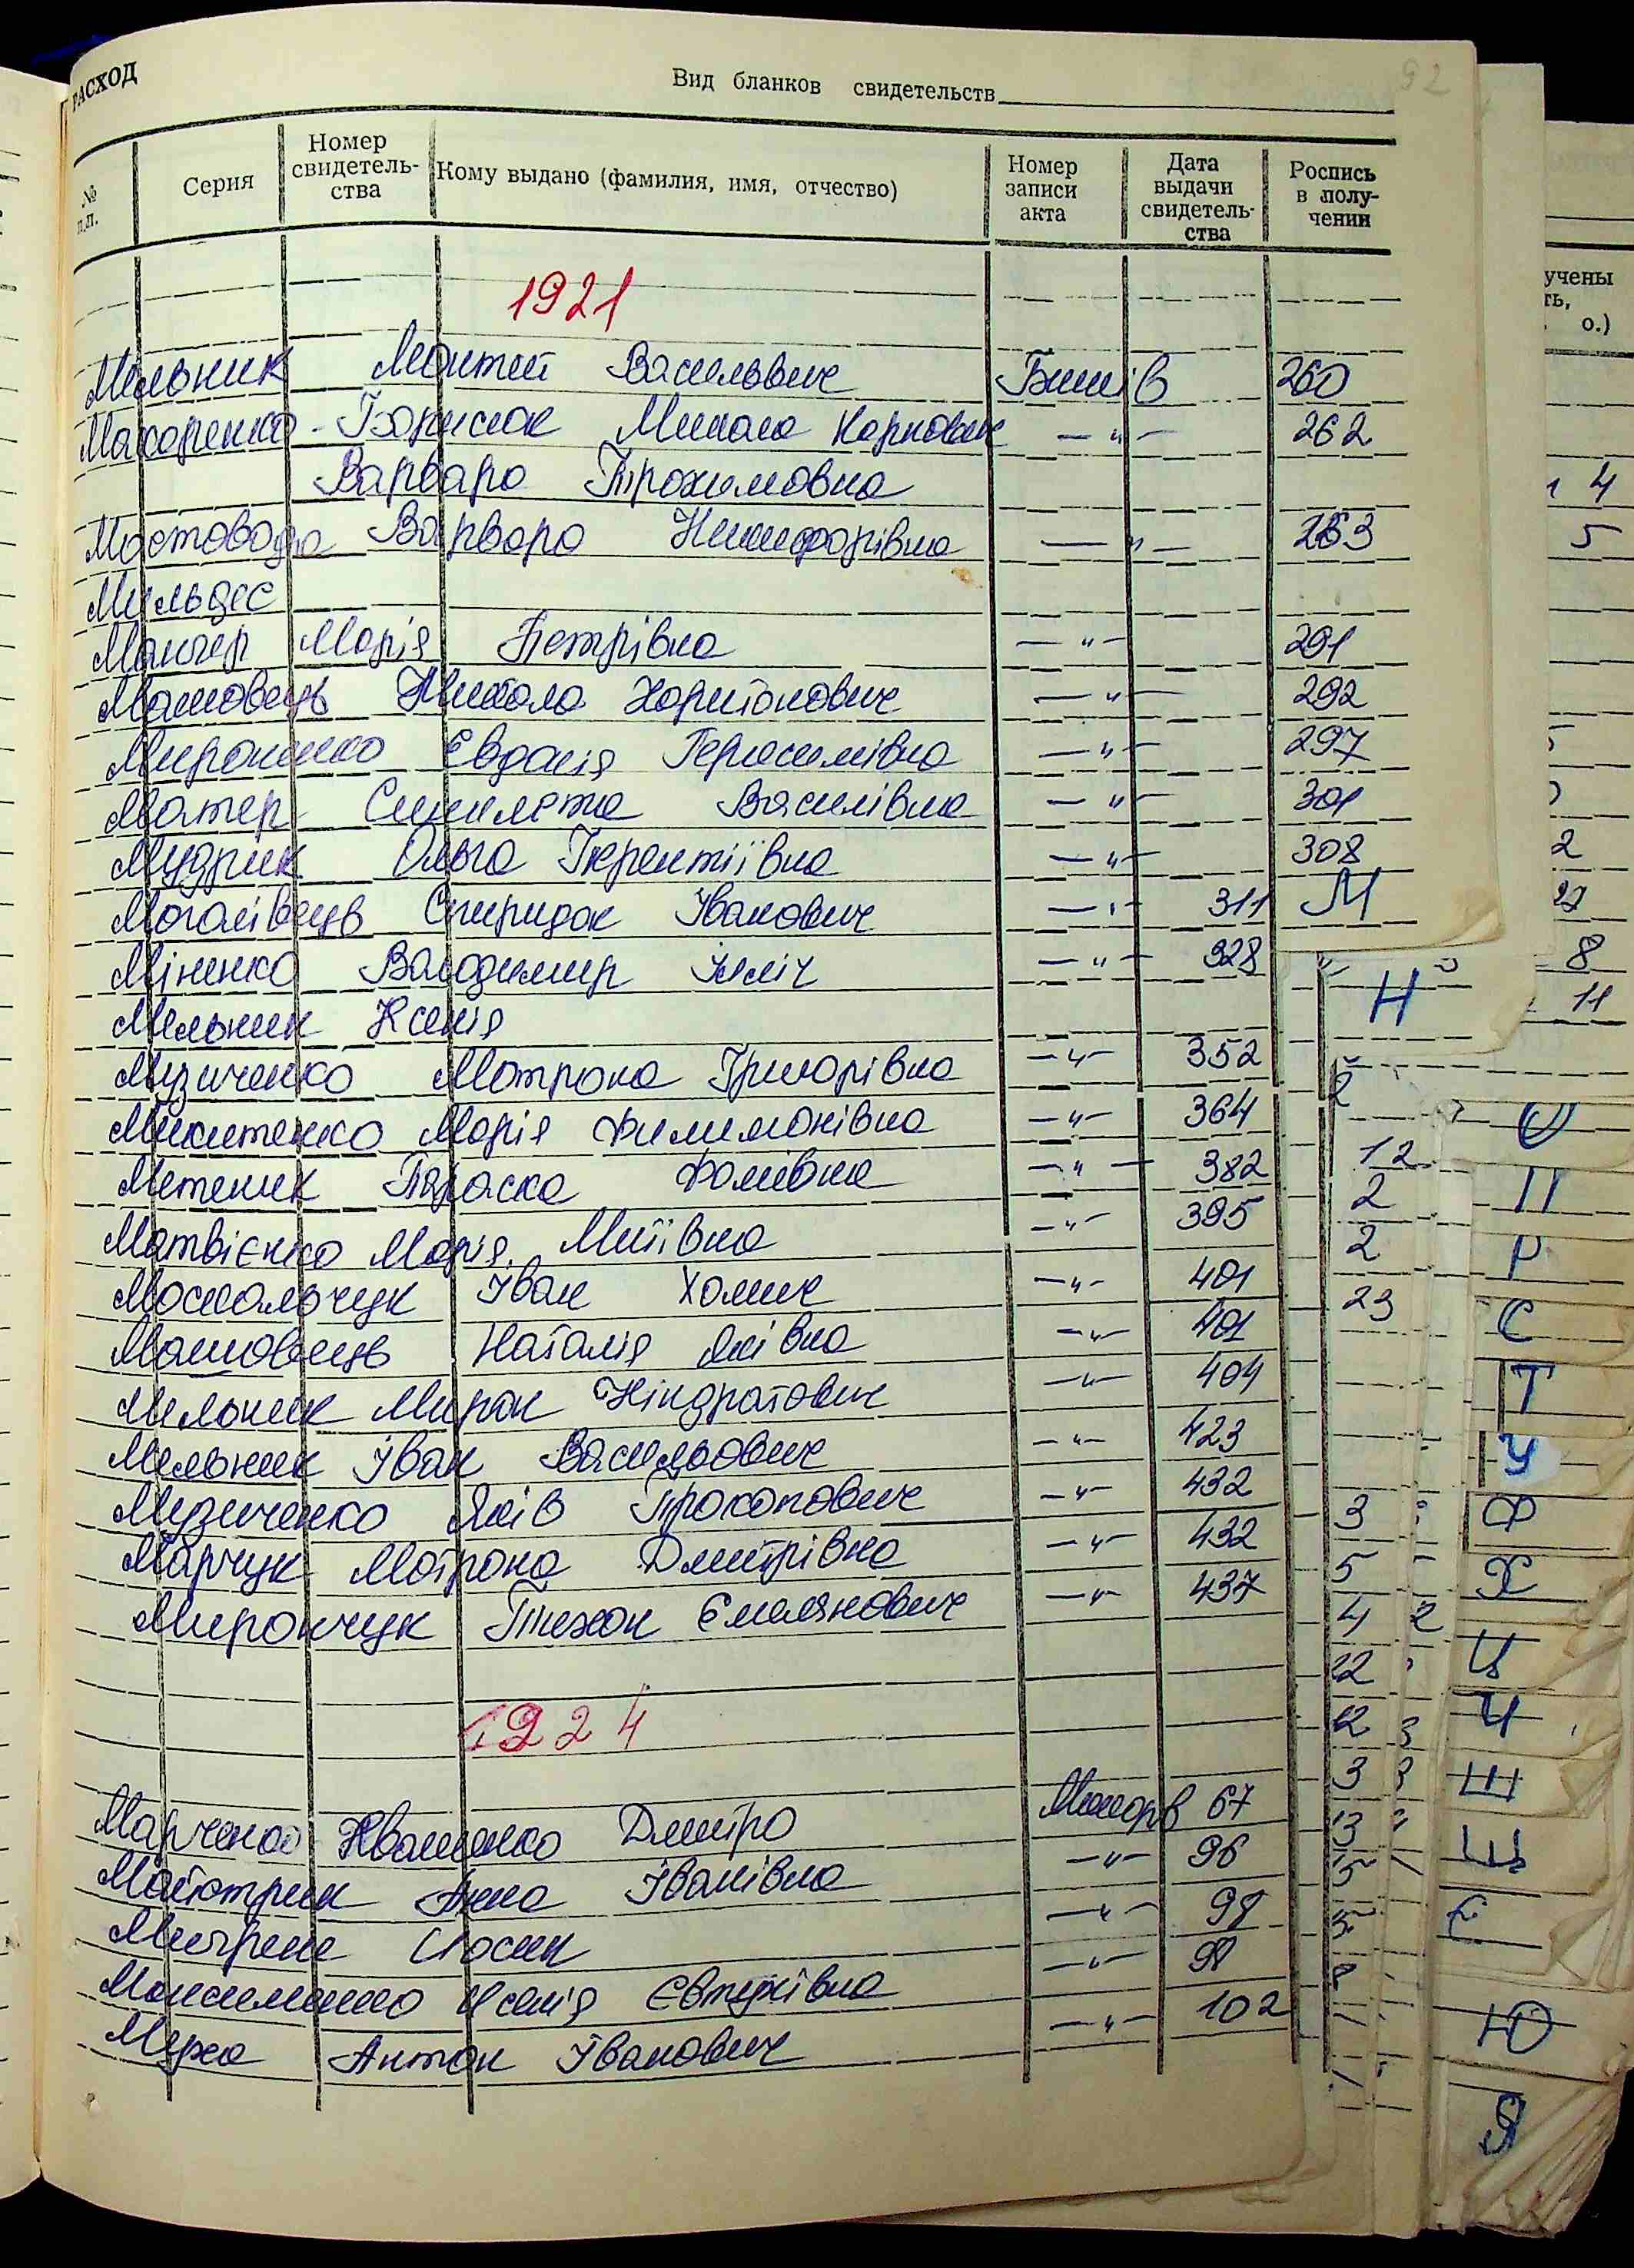 92
РАСХОД
Вид бланков свидетельств
№ п.п. Серия Номер свидетель- ства Кому выдано (фамилия, имя, отчество) Номер записи акта Дата выдачи свидетель- ства Роспись в полу- чении
1921
Мельник Мантей Васильвич Бишів 260
Макоренко - Борисюк Микола Карпович —"— 262
Варвара Трохимовна
Мостовода Варвара Никифорівна —"— 263
Мельдес
Мангер Марія Петрівна —"— 291
Машовець Микола Харитонович —"— 292
Мироненко Євдокія Герасимівна —"— 297
Матер Василівна —"— 301
Мудрик Ольга Терентіївна —"— 308
Могалівець Спиридон Іванович —"— 311 М
Міненко Володимир Ілліч —"— 328
Мельник Ксенія
Музиченко Мотрона Григорівна —"— 352
Микитенко Марія Филимонівна —"— 364
Метеник Параска Фомівна —"— 382
Матвієнко Марія Миіївна —"— 395
Москальчук Іван Хомич —"— 401
Машовець Наталія Яківна —"— 401
Мельник Мирон Кіндратович —"— 404
Мельник Іван Васильович —"— 423
Музиченко Яків Прокопович —"— 432
Марчук Мотрона Дмитрівна —"— 432
Мирончук Тихон Ємелянович —"— 437
1924
Марченко Іваненко Дмитро Макорв 67
Майстрик Анна Іванівна —"— 96
Йосип —"— 98
Максименко Ксенія Євтухівна —"— 98
Муха Антон Іванович —"— 102
учены
ть,
о.)
4
5
2
27
8
11
Н
О
12
2
П
2
Р
23
С
Т
У
3
Ф
5
Х
4 2
Ц
22
12 3
Ч
3 3
Ш
13
Щ
15
Є
5
8
Ю
Я